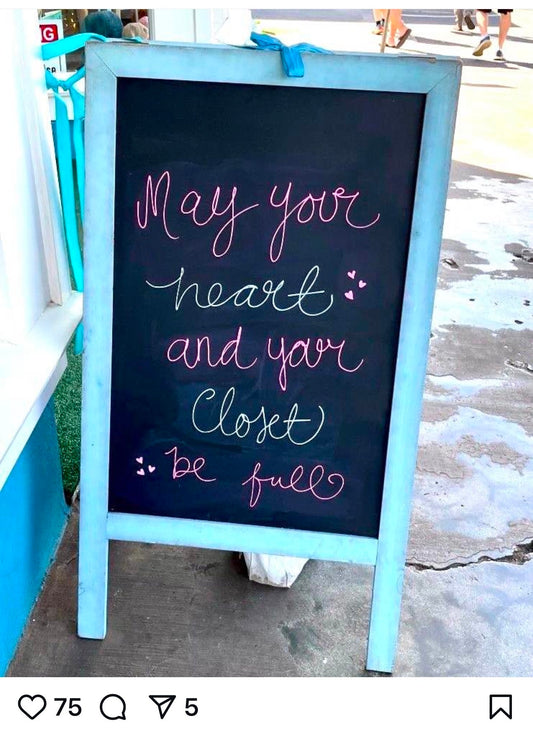 G
May your
heart
and your
Closet
be full
75 5